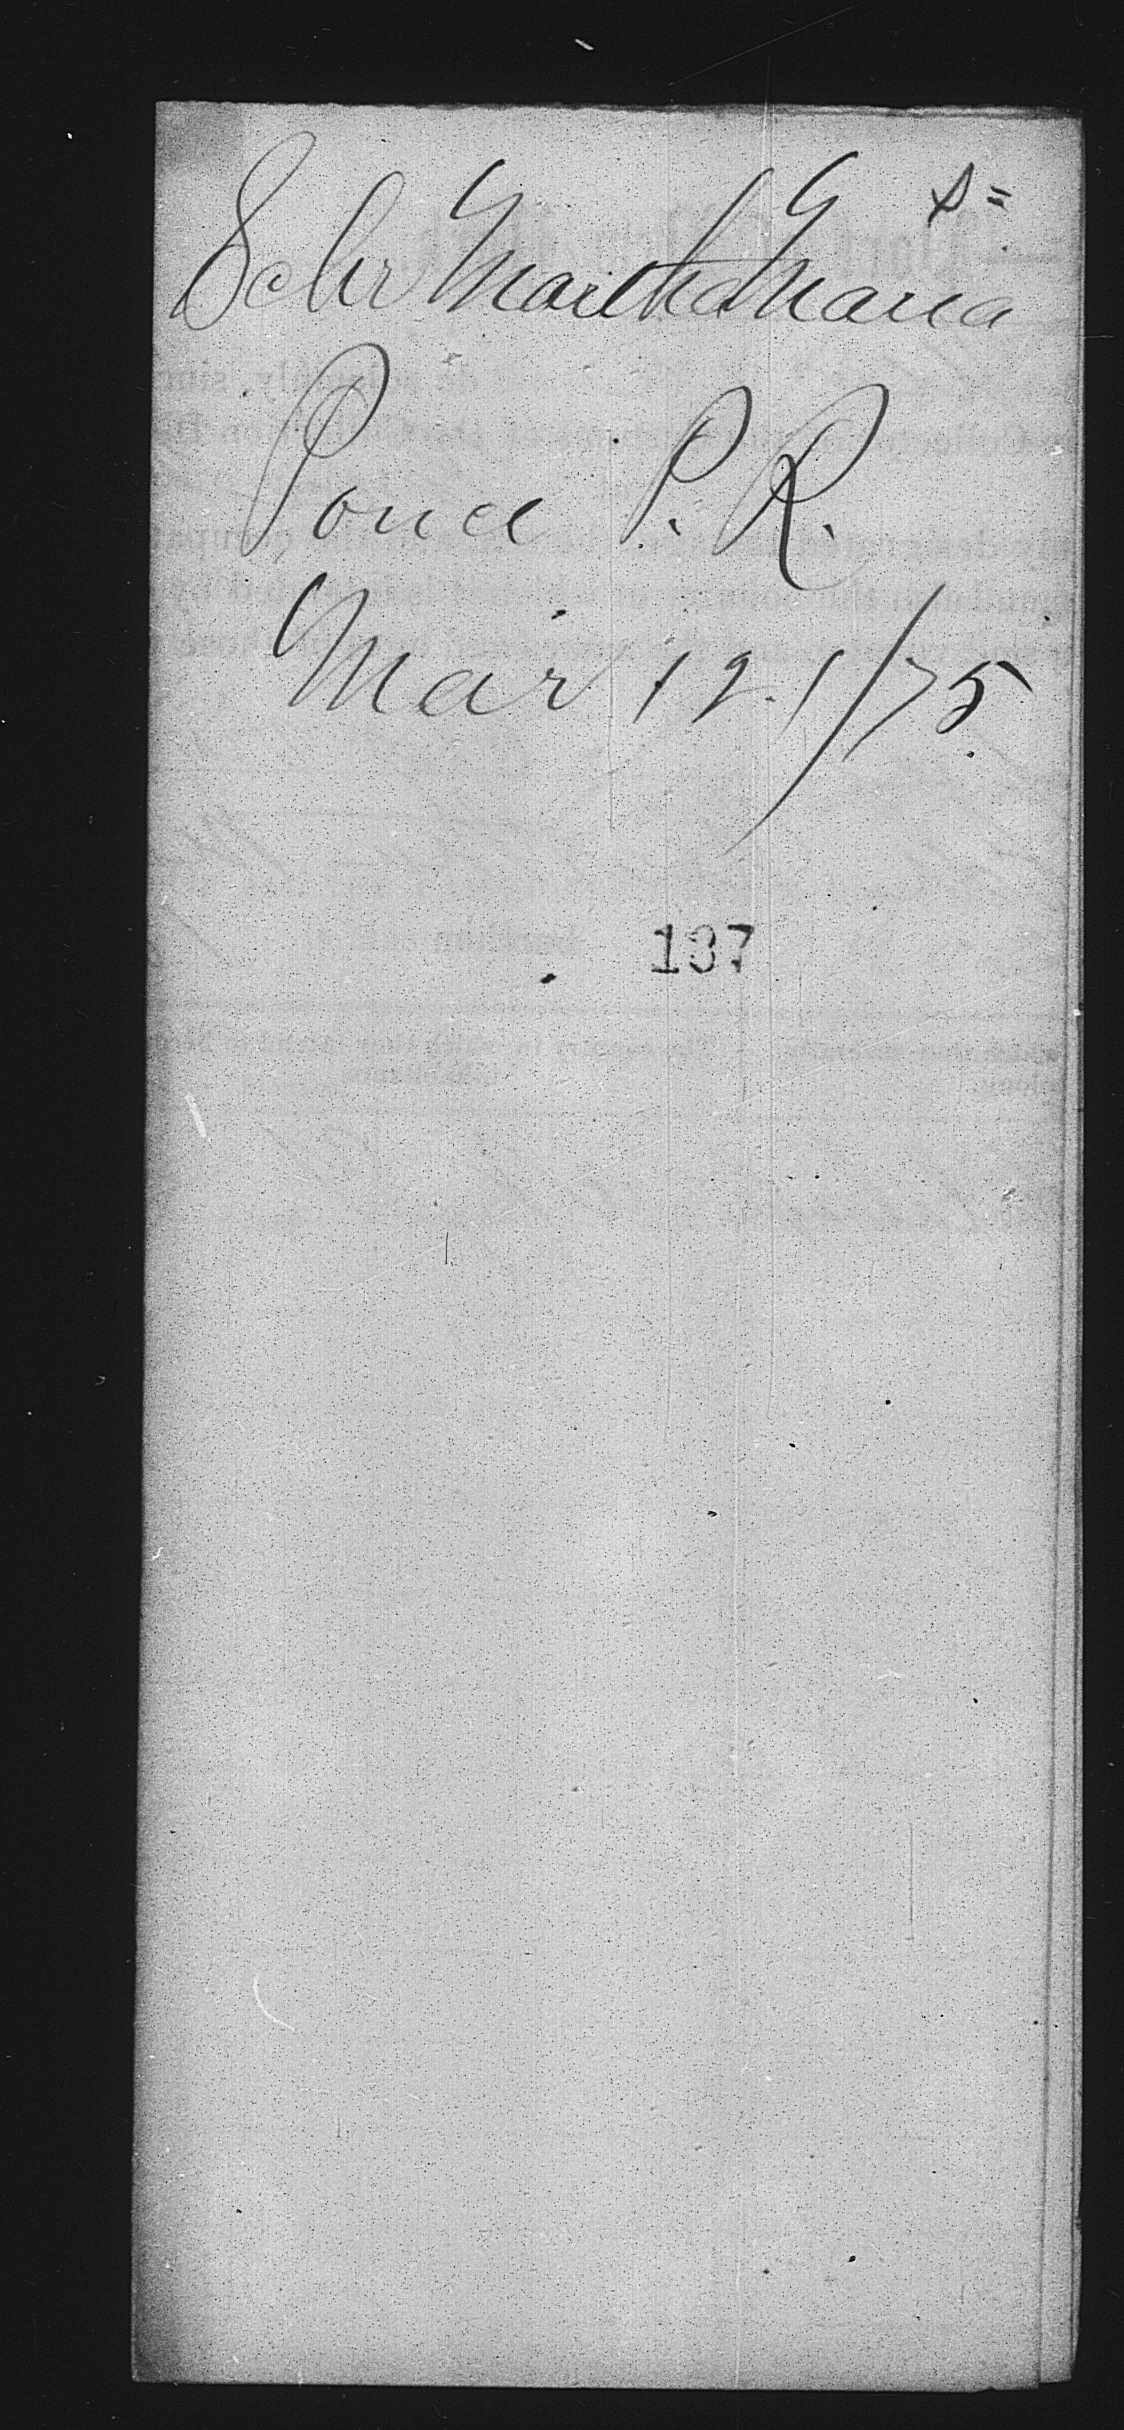 S=
Schr Martha Maria
Ponce P. R.
Mar 12. /75.
137